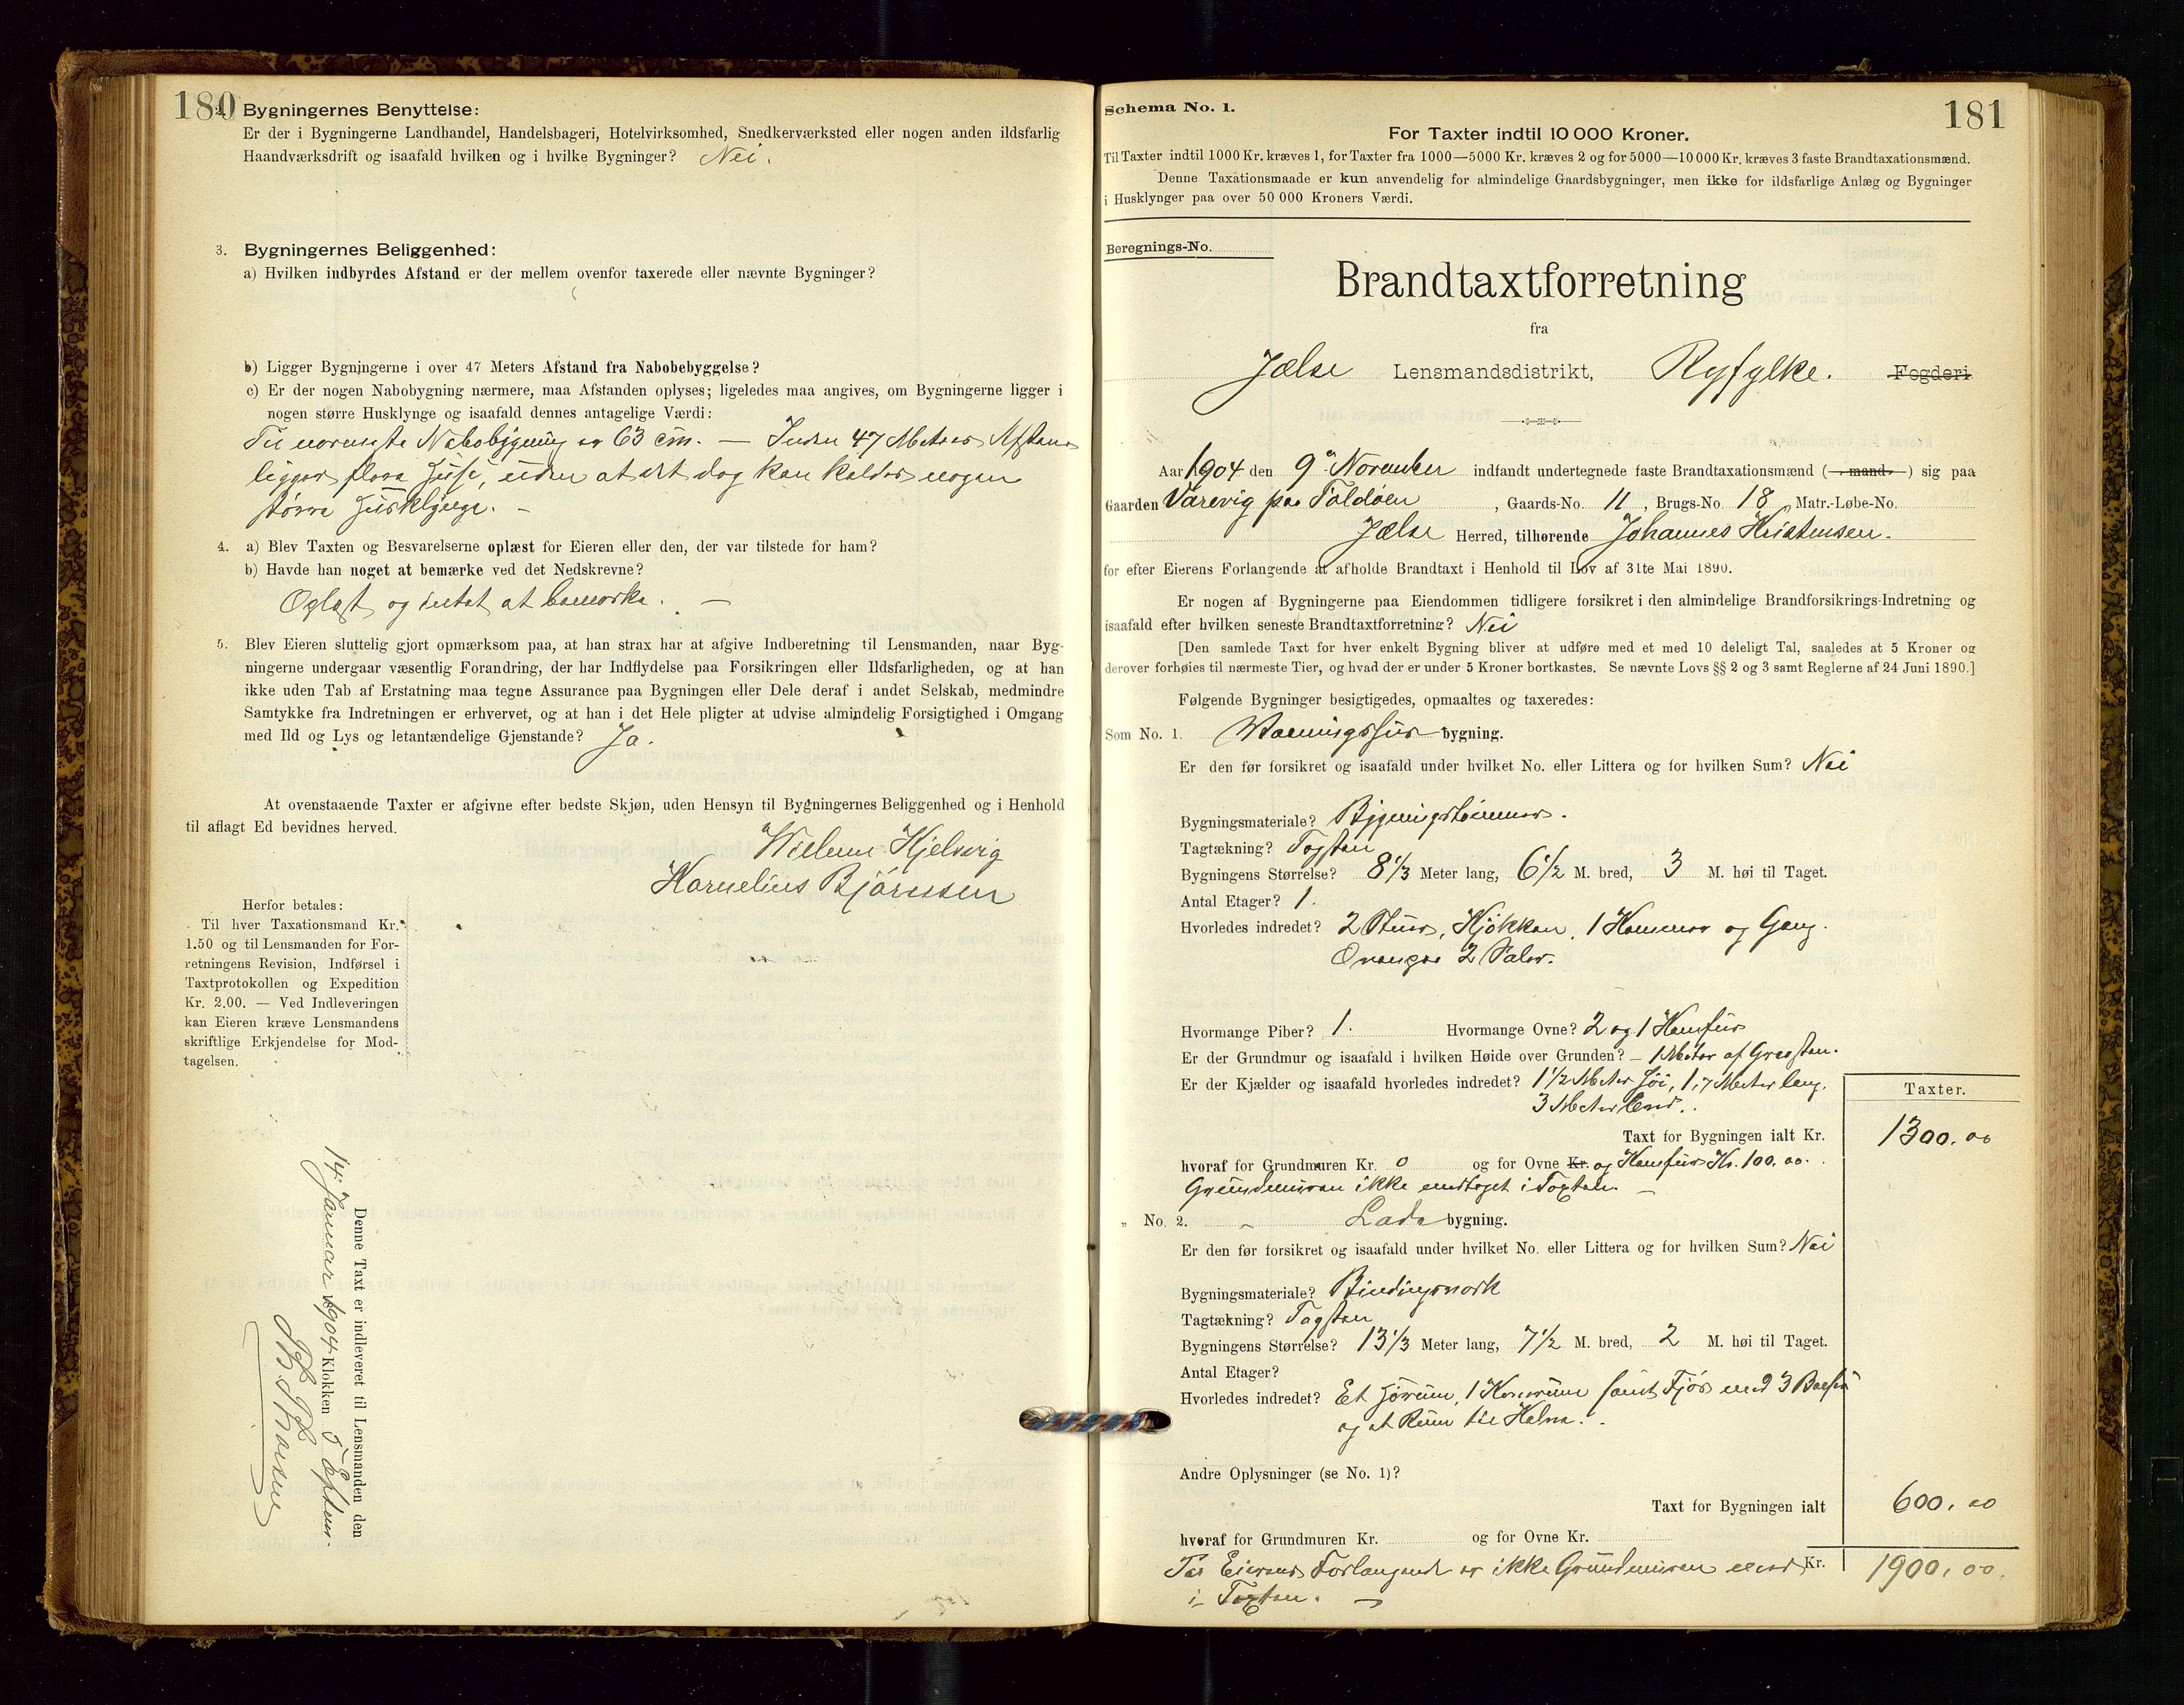 180
2. Bygningernes Benyttelse:
Er der i Bygningerne Landhandel, Handelsbageri, Hotelvirksomhed, Snedkerværksted eller nogen anden ildsfarlig
Haandværksdrift og isaafald hvilken og i hvilke Bygninger? Nei.
3. Bygningernes Beliggenhed:
a) Hvilken indbyrdes Afstand er der mellem ovenfor taxerede eller nævnte Bygninger?
b) Ligger Bygningerne i over 47 Meters Afstand fra Nabobebyggelse?
c) Er der nogen Nabobygning nærmere, maa Afstanden oplyses; ligeledes maa angives, om Bygningerne ligger i
nogen større Husklynge og isaafald dennes antagelige Værdi:
Til nermeste Nabobygning er 63 cm. — Inden 47 Meters Afstand
ligger flere Huse, uden at det dog kan kaldes nogen
større Husklynge. –
4. a) Blev Taxten og Besvarelserne oplæst for Eieren eller den, der var tilstede for ham?
b) Havde han noget at bemærke ved det Nedskrevne?
Oplæst og intet at bemerke. —
5. Blev Eieren sluttelig gjort opmærksom paa, at han strax har at afgive Indberetning til Lensmanden, naar Byg-
ningerne undergaar væsentlig Forandring, der har Indflydelse paa Forsikringen eller Ildsfarligheden, og at han
ikke uden Tab af Erstatning maa tegne Assurance paa Bygningen eller Dele deraf i andet Selskab, medmindre
Samtykke fra Indretningen er erhvervet, og at han i det Hele pligter at udvise almindelig Forsigtighed i Omgang
med Ild og Lys og letantændelige Gjenstande? Ja.
At ovenstaaende Taxter er afgivne efter bedste Skjøn, uden Hensyn til Bygningernes Beliggenhed og i Henhold
til aflagt Ed bevidnes herved.
Hjelvig
Kornelius Bjørnsen
Herfor betales:
Til hver Taxationsmand Kr.
1.50 og til Lensmanden for For-
retningens Revision, Indførsel i
Taxtprotokollen og Expedition
Kr. 2.00. — Ved Indleveringen
kan Eieren kræve Lensmandens
skriftlige Erkjendelse for Mod-
tagelsen.
Denne Taxt er indleveret til Lensmanden den
14. Januar 1904 Klokken 5 Eftem.
181
Schema No. 1.
For Taxter indtil 10 000 Kroner.
Til Taxter indtil 1000 Kr. kræves 1, for Taxter fra 1000—5000 Kr. kræves 2 og for 5000—10 000 Kr. kræves 3 faste Brandtaxationsmænd.
Denne Taxationsmaade er kun anvendelig for almindelige Gaardsbygninger, men ikke for ildsfarlige Anlæg og Bygninger
i Husklynger paa over 50 000 Kroners Værdi.
Beregnings-No.
Brandtaxtforretning
fra
Jælse Lensmandsdistrikt, Ryfylke. Fogderi
Aar 1904 den 9de November indfandt undertegnede faste Brandtaxationsmænd ( mand ) sig paa
Gaarden Varevig paa Foldøen, Gaards-No. 11, Brugs-No. 18, Matr.-Løbe-No.
Jælse Herred, tilhørende Johannes Kristensen.
for efter Eierens Forlangende at afholde Brandtaxt i Henhold til Lov af 31te Mai 1890.
Er nogen af Bygningerne paa Eiendommen tidligere forsikret i den almindelige Brandforsikrings-Indretning og
isaafald efter hvilken seneste Brandtaxtforretning? Nei
[Den samlede Taxt for hver enkelt Bygning bliver at udføre med et med 10 deleligt Tal, saaledes at 5 Kroner og
derover forhøies til nærmeste Tier, og hvad der er under 5 Kroner bortkastes. Se nævnte Lovs §§ 2 og 3 samt Reglerne af 24 Juni 1890.]
Følgende Bygninger besigtigedes, opmaaltes og taxeredes:
Som No. 1. Vaaningshus bygning.
Er den før forsikret og isaafald under hvilket No. eller Littera og for hvilken Sum? Nei
Bygningsmateriale? Bygningstømmer.
Tagtækning? Tagsten
Bygningens Størrelse? 8 1/3 Meter lang, 6 1/2 M. bred, 3 M. høi til Taget.
Antal Etager? 1.
Hvorledes indredet? 2 Stuer, Kjøkken, 1 Kammer og Gang.
Ovenpaa 2 Saler.
Hvormange Piber? 1. Hvormange Ovne? 2 og 1 Komfur
Er der Grundmur og isaafald i hvilken Høide over Grunden? – 1 Meter af Graasten.
Er der Kjælder og isaafald hvorledes indredet? 1 1/2 Meter høi, 1,7 Meter lang.
3 Meter bred.
Taxter.
Taxt for Bygningen ialt Kr. 1300.00
hvoraf for Grundmuren Kr. 0 og for Ovne Kr. og Komfur Kr. 100.00.
Grundmuren ikke medtaget i Taxten. –
„ No. 2. – Lade bygning.
Er den før forsikret og isaafald under hvilket No. eller Littera og for hvilken Sum? Nei
Bygningsmateriale? Bindingsverk
Tagtækning? Tagsten
Bygningens Størrelse? 13 1/3 Meter lang, 7 1/2 M. bred, 2 M. høi til Taget.
Antal Etager?
Hvorledes indredet? Et Hørum, 1 Kornrum samt Fjøs med 3 Baase
og et Rum til Kalve.
Andre Oplysninger (se No. 1)?
Taxt for Bygningen ialt 600.00
hvoraf for Grundmuren Kr. og for Ovne Kr.
Paa Eierens Forlangende er ikke Grundmuren med Kr. 1900.00.
i Taxten. –